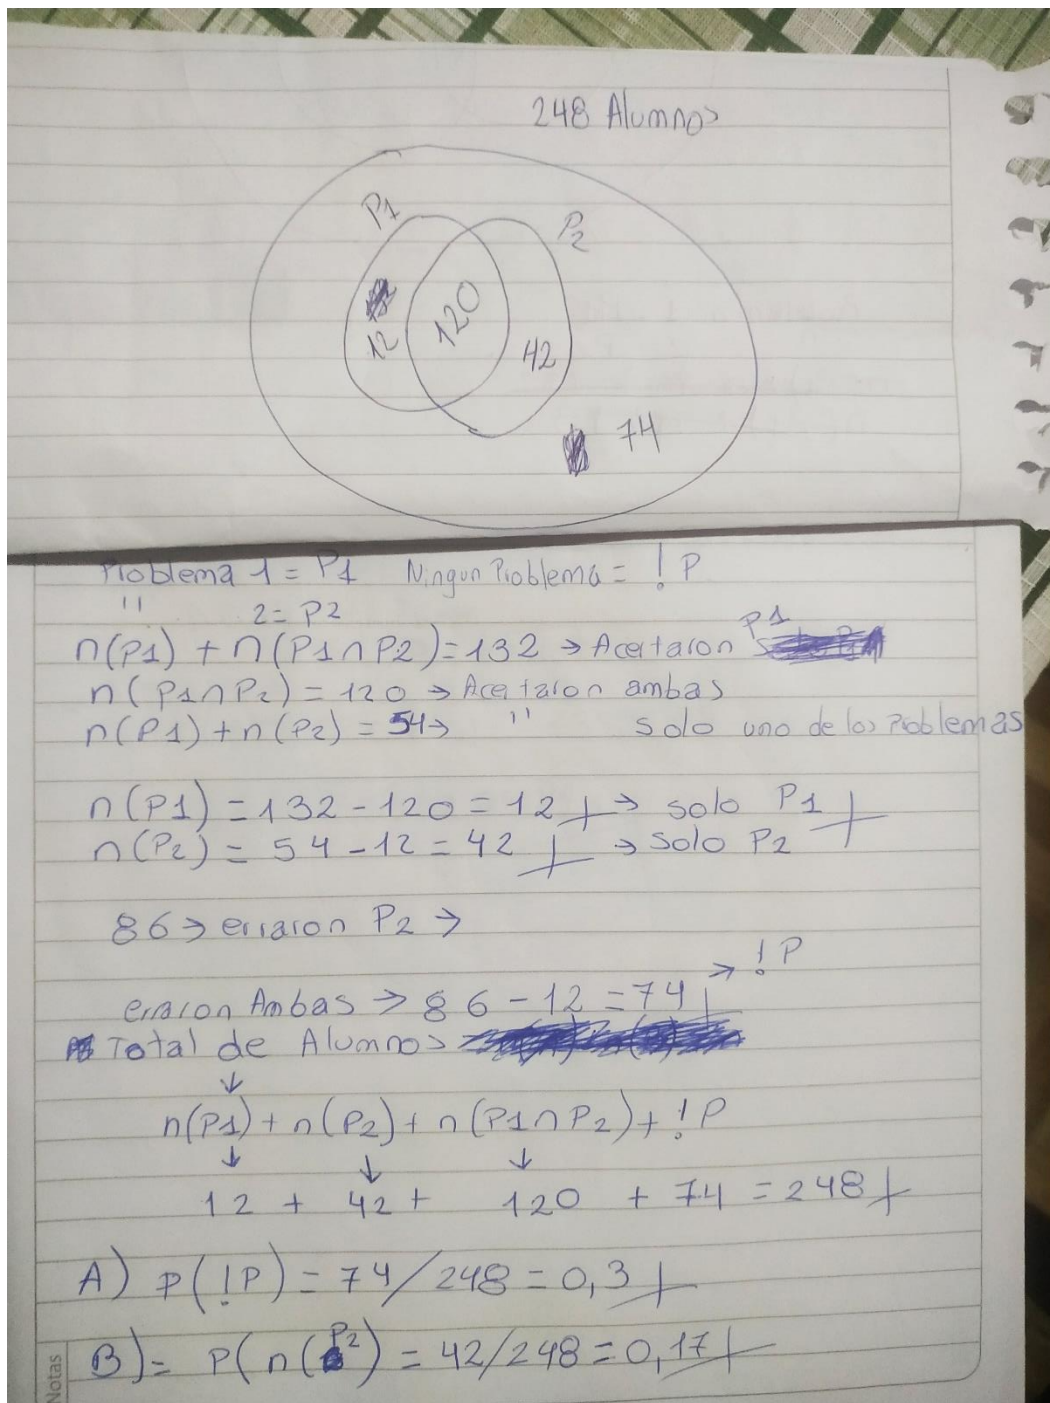 248 Alumnos
P1
P2
12
120
42
74
Problema 1 = P1 Ningun Problema = ! P
" 2 = P2
n(P1) + n(P1∩P2) = 132 → Acertaron P1
n(P1∩P2) = 120 → Acertaron ambas
n(P1) + n(P2) = 54 → " solo uno de los Problemas
n(P1) = 132 - 120 = 12 → solo P1
n(P2) = 54 - 12 = 42 → solo P2
86 → erraron P2 →
erraron Ambas → 86 - 12 = 74 → ! P
Total de Alumnos
↓
n(P1) + n(P2) + n(P1∩P2) + ! P
↓ ↓ ↓
12 + 42 + 120 + 74 = 248
A) P(!P) = 74/248 = 0,3
B) = P(n(P2) = 42/248 = 0,17
Notas